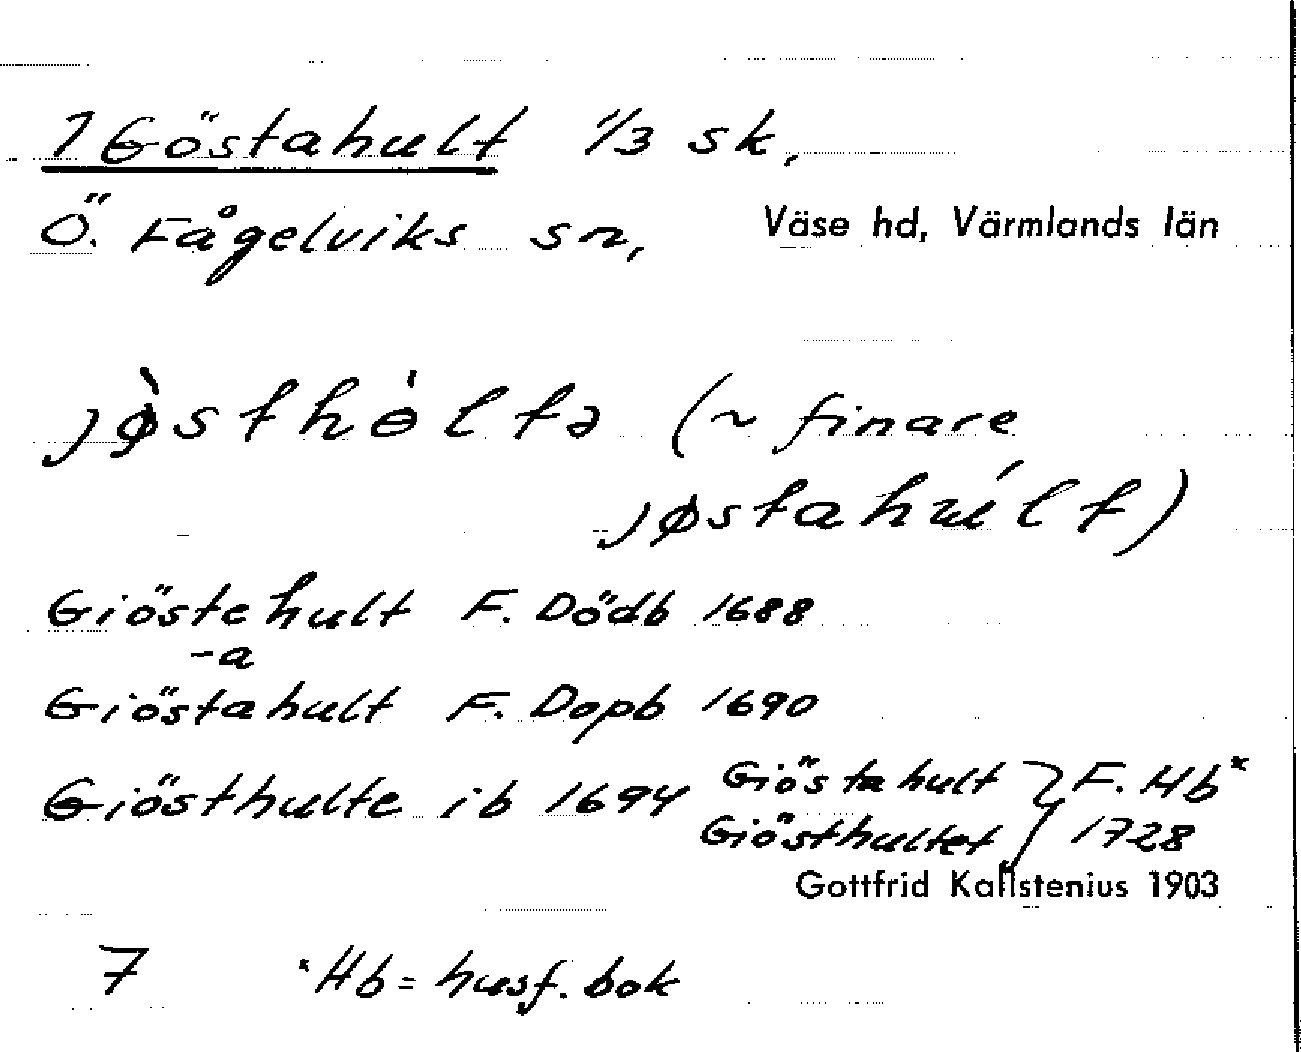 1 Göstahult 1/3 sk,
Ö. Fågelviks sn, Väse hd, Värmlands län
jø̀sthɵ̀ltə (~ finare
jøstahúlt)
Giöstehult F. Dödb 1688
-a
Giöstahult F. Dopb 1690
Giösthulte ib 1694 Giöstahult } F. Hb*
Giösthultet } 1728
Gottfrid Kallstenius 1903
7 *Hb = husf. bok